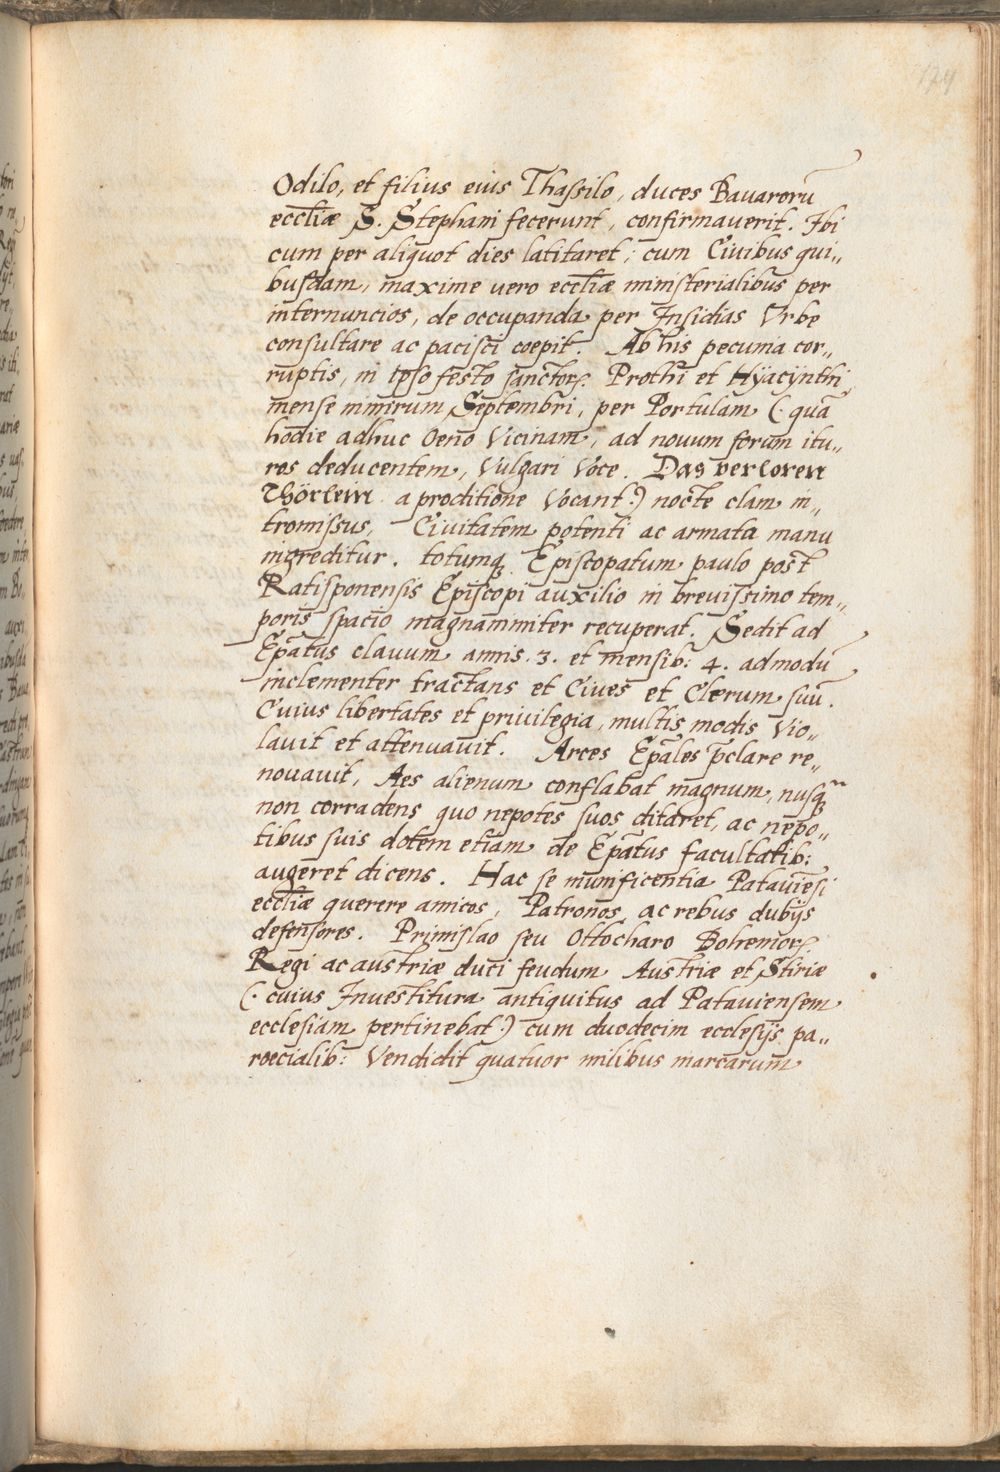 174
Odilo, et filius eius Thaſsilo, duces Bauarorū
eccl̄iæ S. Stephani fecerunt, confirmauerit. Ibi
cum per aliquot dies latitaret; cum Ciuibus qui„
buſdam, maxime uero eccl̄iæ miniſterialibus per
internuncios, de occupanda per Inſidias Vrbe
conſultare ac paciſci coepit. Ab his pecunia cor„
ruptis, in ipſo feſto ſanctorꝝ. Prothi et Hÿacÿnthi
menſe nimirum Septembri, per Portulam (. quā
hodie adhuc Oeno Vicinam, ad nouum forum itu„
ros deducentem, Vulgari Voce. Das verloren
Thörlein a proditione Vocant.) nocte clam in„
tromiſsus, Ciuitatem potenti ac armata manu
ingreditur. totumqꝫ Epiſcopatum paulo post
Ratiſponensis Epiſcopi auxilio in breuiſsimo tem„
poris ſpacio magnanimiter recuperat. Sedit ad
Ep̄atus clauum annis .3. et menſib: 4. admodū
inclementer tractans et Ciues et Clerum ſuū.
Cuius libertates et priuilegia, multis modis Vio„
lauit et attenuauit. Arces Ep̄ales p̄clare re„
nouauit, Aes alienum conflabat magnum, nusqꝫm
non corradens quo nepotes ſuos ditaret, ac nepo„
tibus ſuis dotem etiam de Ep̄atus facultatib:
augeret dicens. Hac ſe munificentia Patauiēſi
eccl̄iæ querere amicos, Patronos ac rebus dubijs
defenſores. Primislao ſeu Ottocharo Bohemorꝝ.
Regi ac auſtriæ duci feudum Auſtriæ et Stiriæ
(. cuius Inueſtitura antiquitus ad Patauienſem
eccleſiam pertinebat.) cum duodecim eccleſijs pa„
roecialib: Vendidit quatuor milibus marcarum